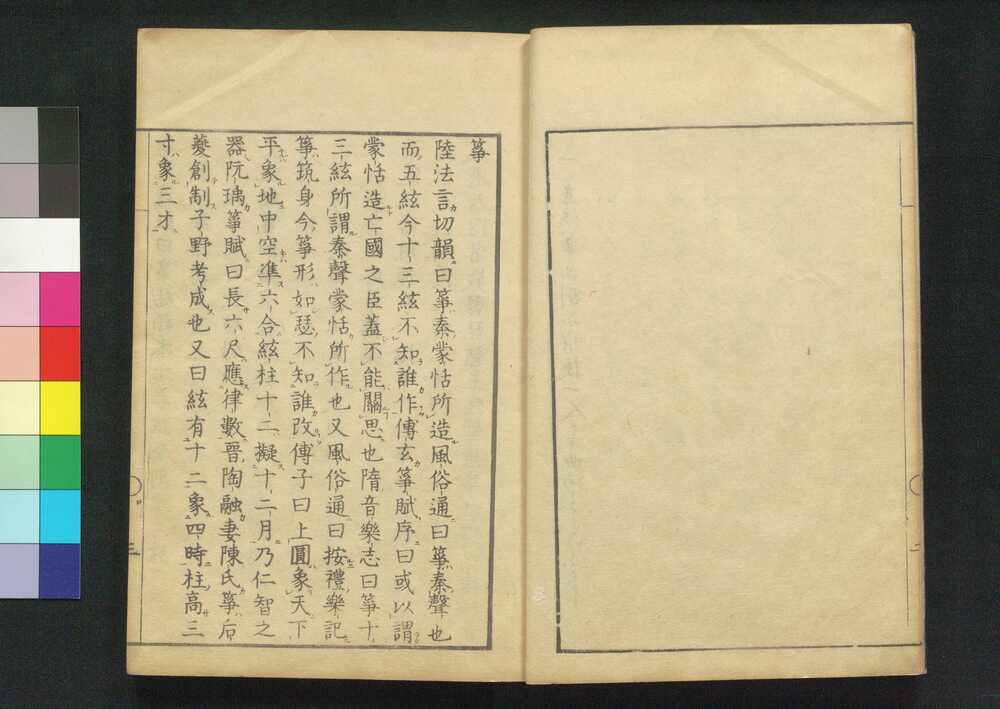 箏
陸法言切韻曰箏秦蒙恬所造風俗通曰箏秦聲也
而五絃今十三絃不知誰作傅玄箏賦序曰或以謂
蒙恬造亡國之臣蓋不能關思也隋音樂志曰箏十
三絃所謂秦聲蒙恬所作也又風俗通曰按禮樂記
箏筑身今箏形如瑟不知誰改傅子曰上圓象天下
平象地中空準六合絃柱十二擬十二月乃仁智之
器阮瑀箏賦曰長六尺應律數晉陶融妻陳氏箏后
夔創制子野考成也又曰絃有十二象四時柱高三
寸象三才
三